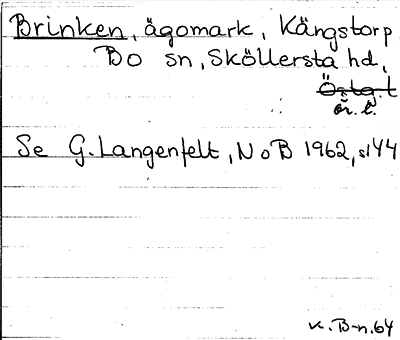 Brinken, ägomark, Kängstorp
Bo sn, Sköllersta hd,
Östg. l
ör. l.
Se G. Langenfelt, NoB 1962, s144
K. B-n. 64